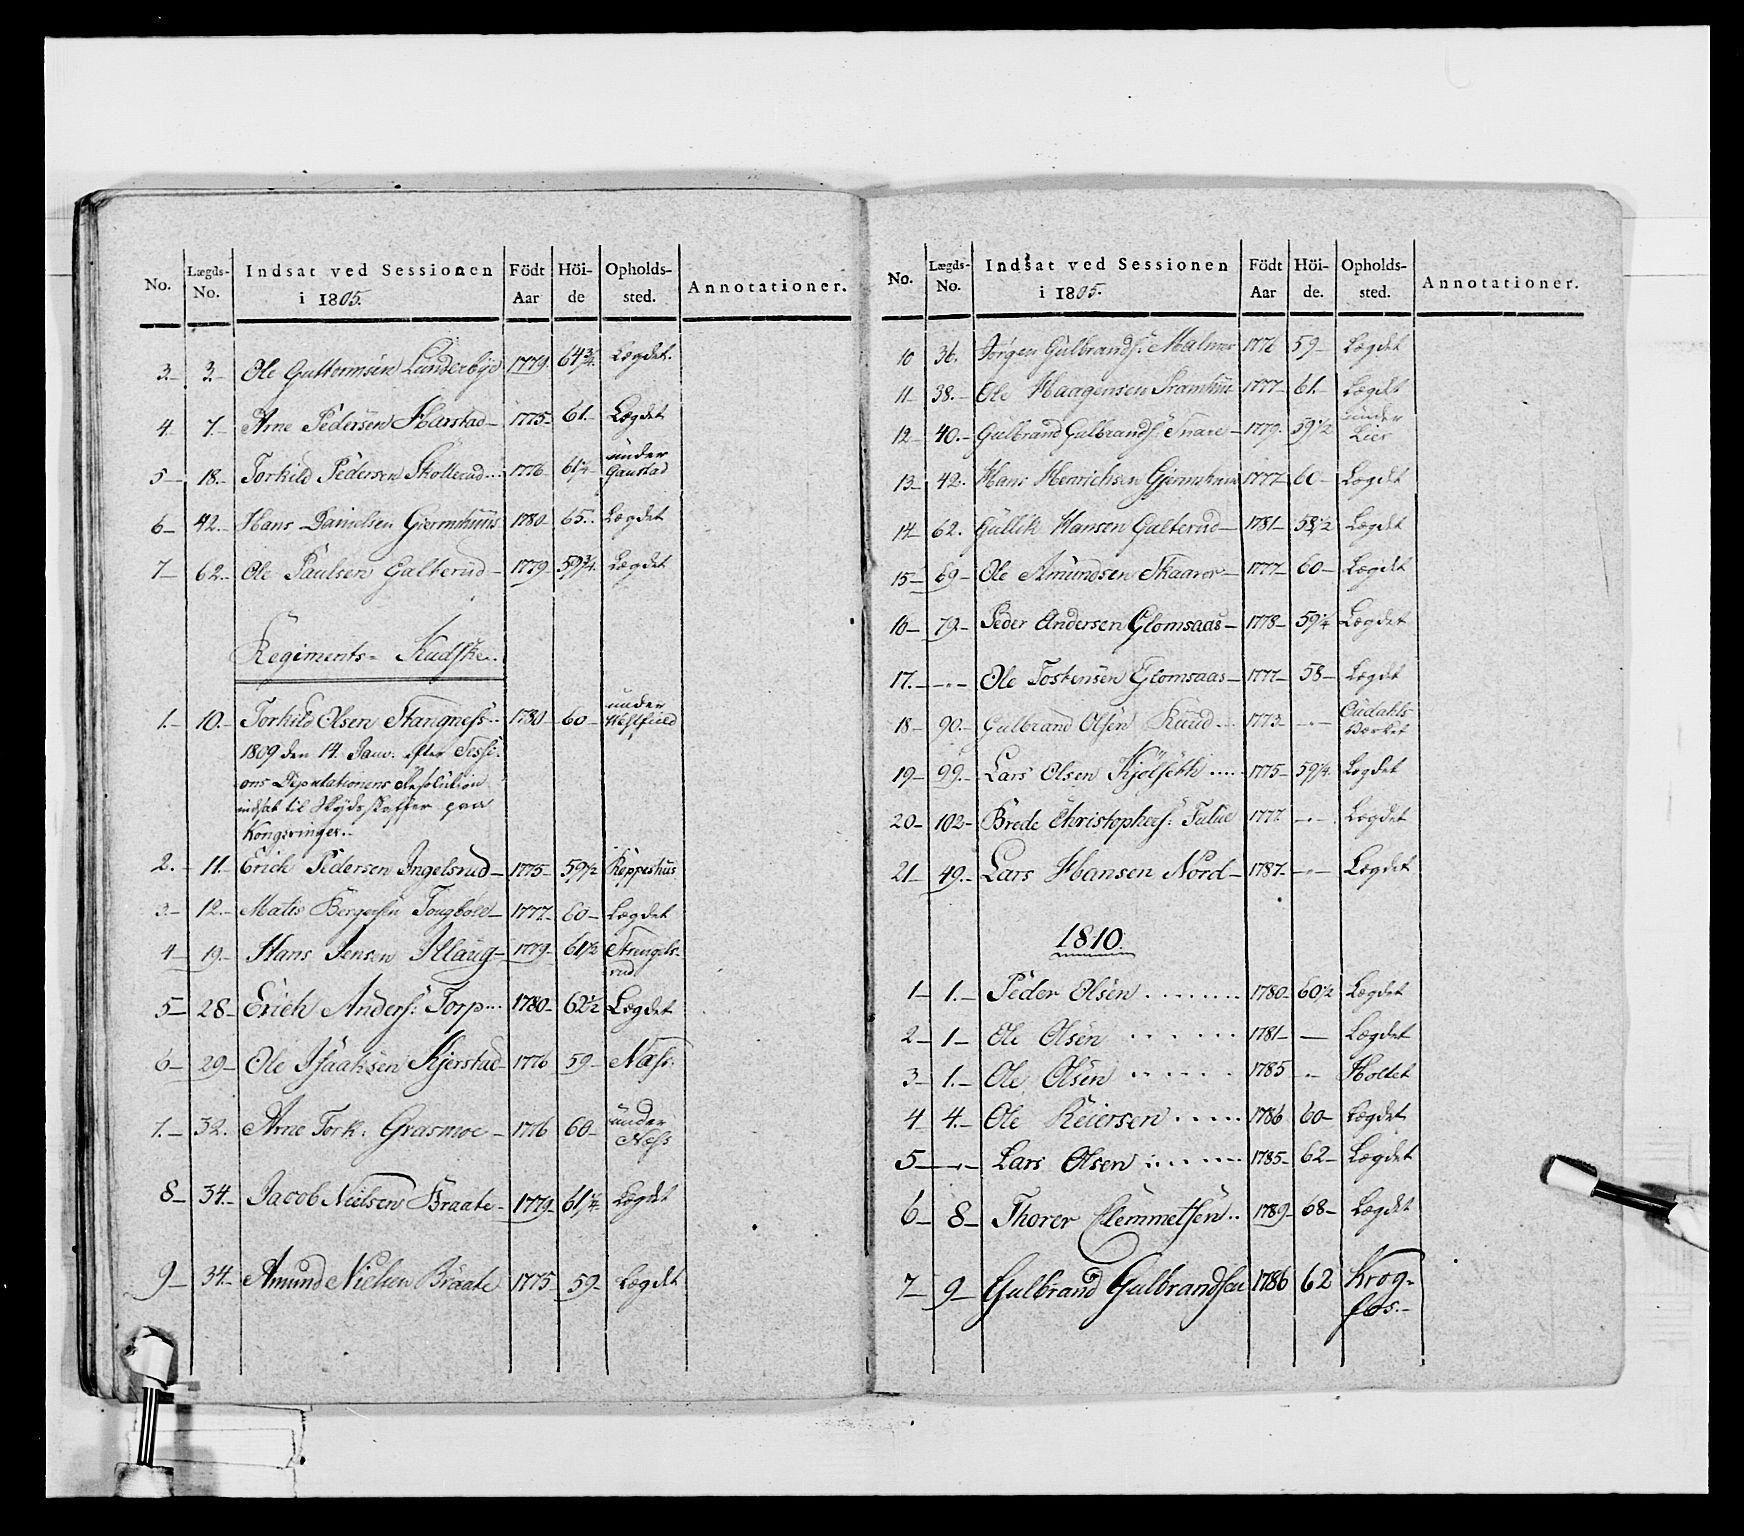 No. Lægds-No. Indsat ved Sessionen i 1805. Födt Aar Höi-de Opholds-sted. Annotationer.
3.– 3.– Ole Guttormsen Lunderbye 1779. 64 3/4. Lægdet.
4.– 7.– Arne Pedersen Harstad– 1775– 61.– Lægdet
5– 18.– Torkild Pedersen Skollerud... 1776– 61 1/4– under Gaustad
6– 42.– Hans Danielsen Giermshuus 1780– 65.. Lægdet
7– 62.– Ole Paulsen Galterud– 1779– 59 3/4. Lægdet
Regiments- Kudske..
1.– 10.– Torkild Olsen Stangness.. 1780– 60– under Westfield
1809 den 14. Janv. efter Sessi-
ons Deputationens Resolution
indsat til Skydsskaffer paa
Kongsvinger..
2.– 11.– Erich Pedersen Ingelsrud– 1775– 59 1/2 Keppeshus
3.– 12.– Matis Bergersen Tougbøle– 1777.– 60– Lægdet
4– 19.– Hans Jensen Illaug– 1779– 61 1/2 Strengels-rud
5– 28– Erich Anders: Torp... 1780– 62 1/2 Lægdet
6– 29– Ole Isaaksen Kjerstad– 1776 59– Næss:
7.– 32. Arne Tork. Grasmoe– 1776 60– under Næss
8– 34– Jacob Nielsen Braate– 1779– 61 1/4– Lægdet
9– 34– Amund Nielsen Braate 1775– 59– Lægdet
No. Lægds-No. Indsat ved Sessionen i 1805. Födt Aar Höi-de. Opholds-sted. Annotationer.
10 36. Jørgen Gulbrands: Malmer 1776 59– Lægdet
11– 38.– Ole Haagensen 1777– 61. Lægdet
12– 40.– Gulbrand Gulbrands: Snare– 1779. 59 1/2 under Lier
13– 42. Hans Henrichsen Gjermshuus 1777– 60– Lægdet
14– 62. Gullik Hansen Galterud– 1781– 58 1/2 Lægdet
15– 69– Ole Amundsen Skaarer– 1777– 60– Lægdet
16– 79– Peder Andersen Glomsaas– 1778– 59 1/4 Lægdet
17.– –"– Ole Tostensen Glomsaas– 1777– 58– Lægdet
18– 90.– Gulbrand Olsen Ruud... 1773– –"– Oudahls Værket
19– 99.– Lars Olsen Kjølseth ..... 1775– 59 1/4. Lægdet
20– 102– Brede Christophers: 1777. –"– Lægdet
21– 49.– Lars Hansen Nord– 1787– –"– Lægdet
1810.
1– 1.– Peder Olsen ........ 1780– 60 1/2 Lægdet
2– 1– Ole Olsen ...... 1781– — Lægdet
3– 1.– Ole Olsen ...... 1785 –"– Holtet
4 4.– Ole Reiersen ..... 1786 60– Lægdet
5– –"– Lars Olsen ....... 1785– 62– Lægdet
6– 8– Thorer Clemmetsen.. 1789– 68– Lægdet
7– 9– Gulbrand Gulbrandsen 1786 62 Krog-
fos.–